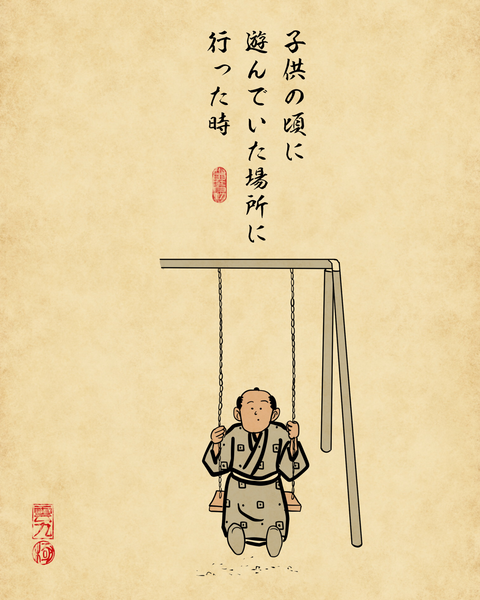 子供の頃に
遊んでいた場所に
行った時